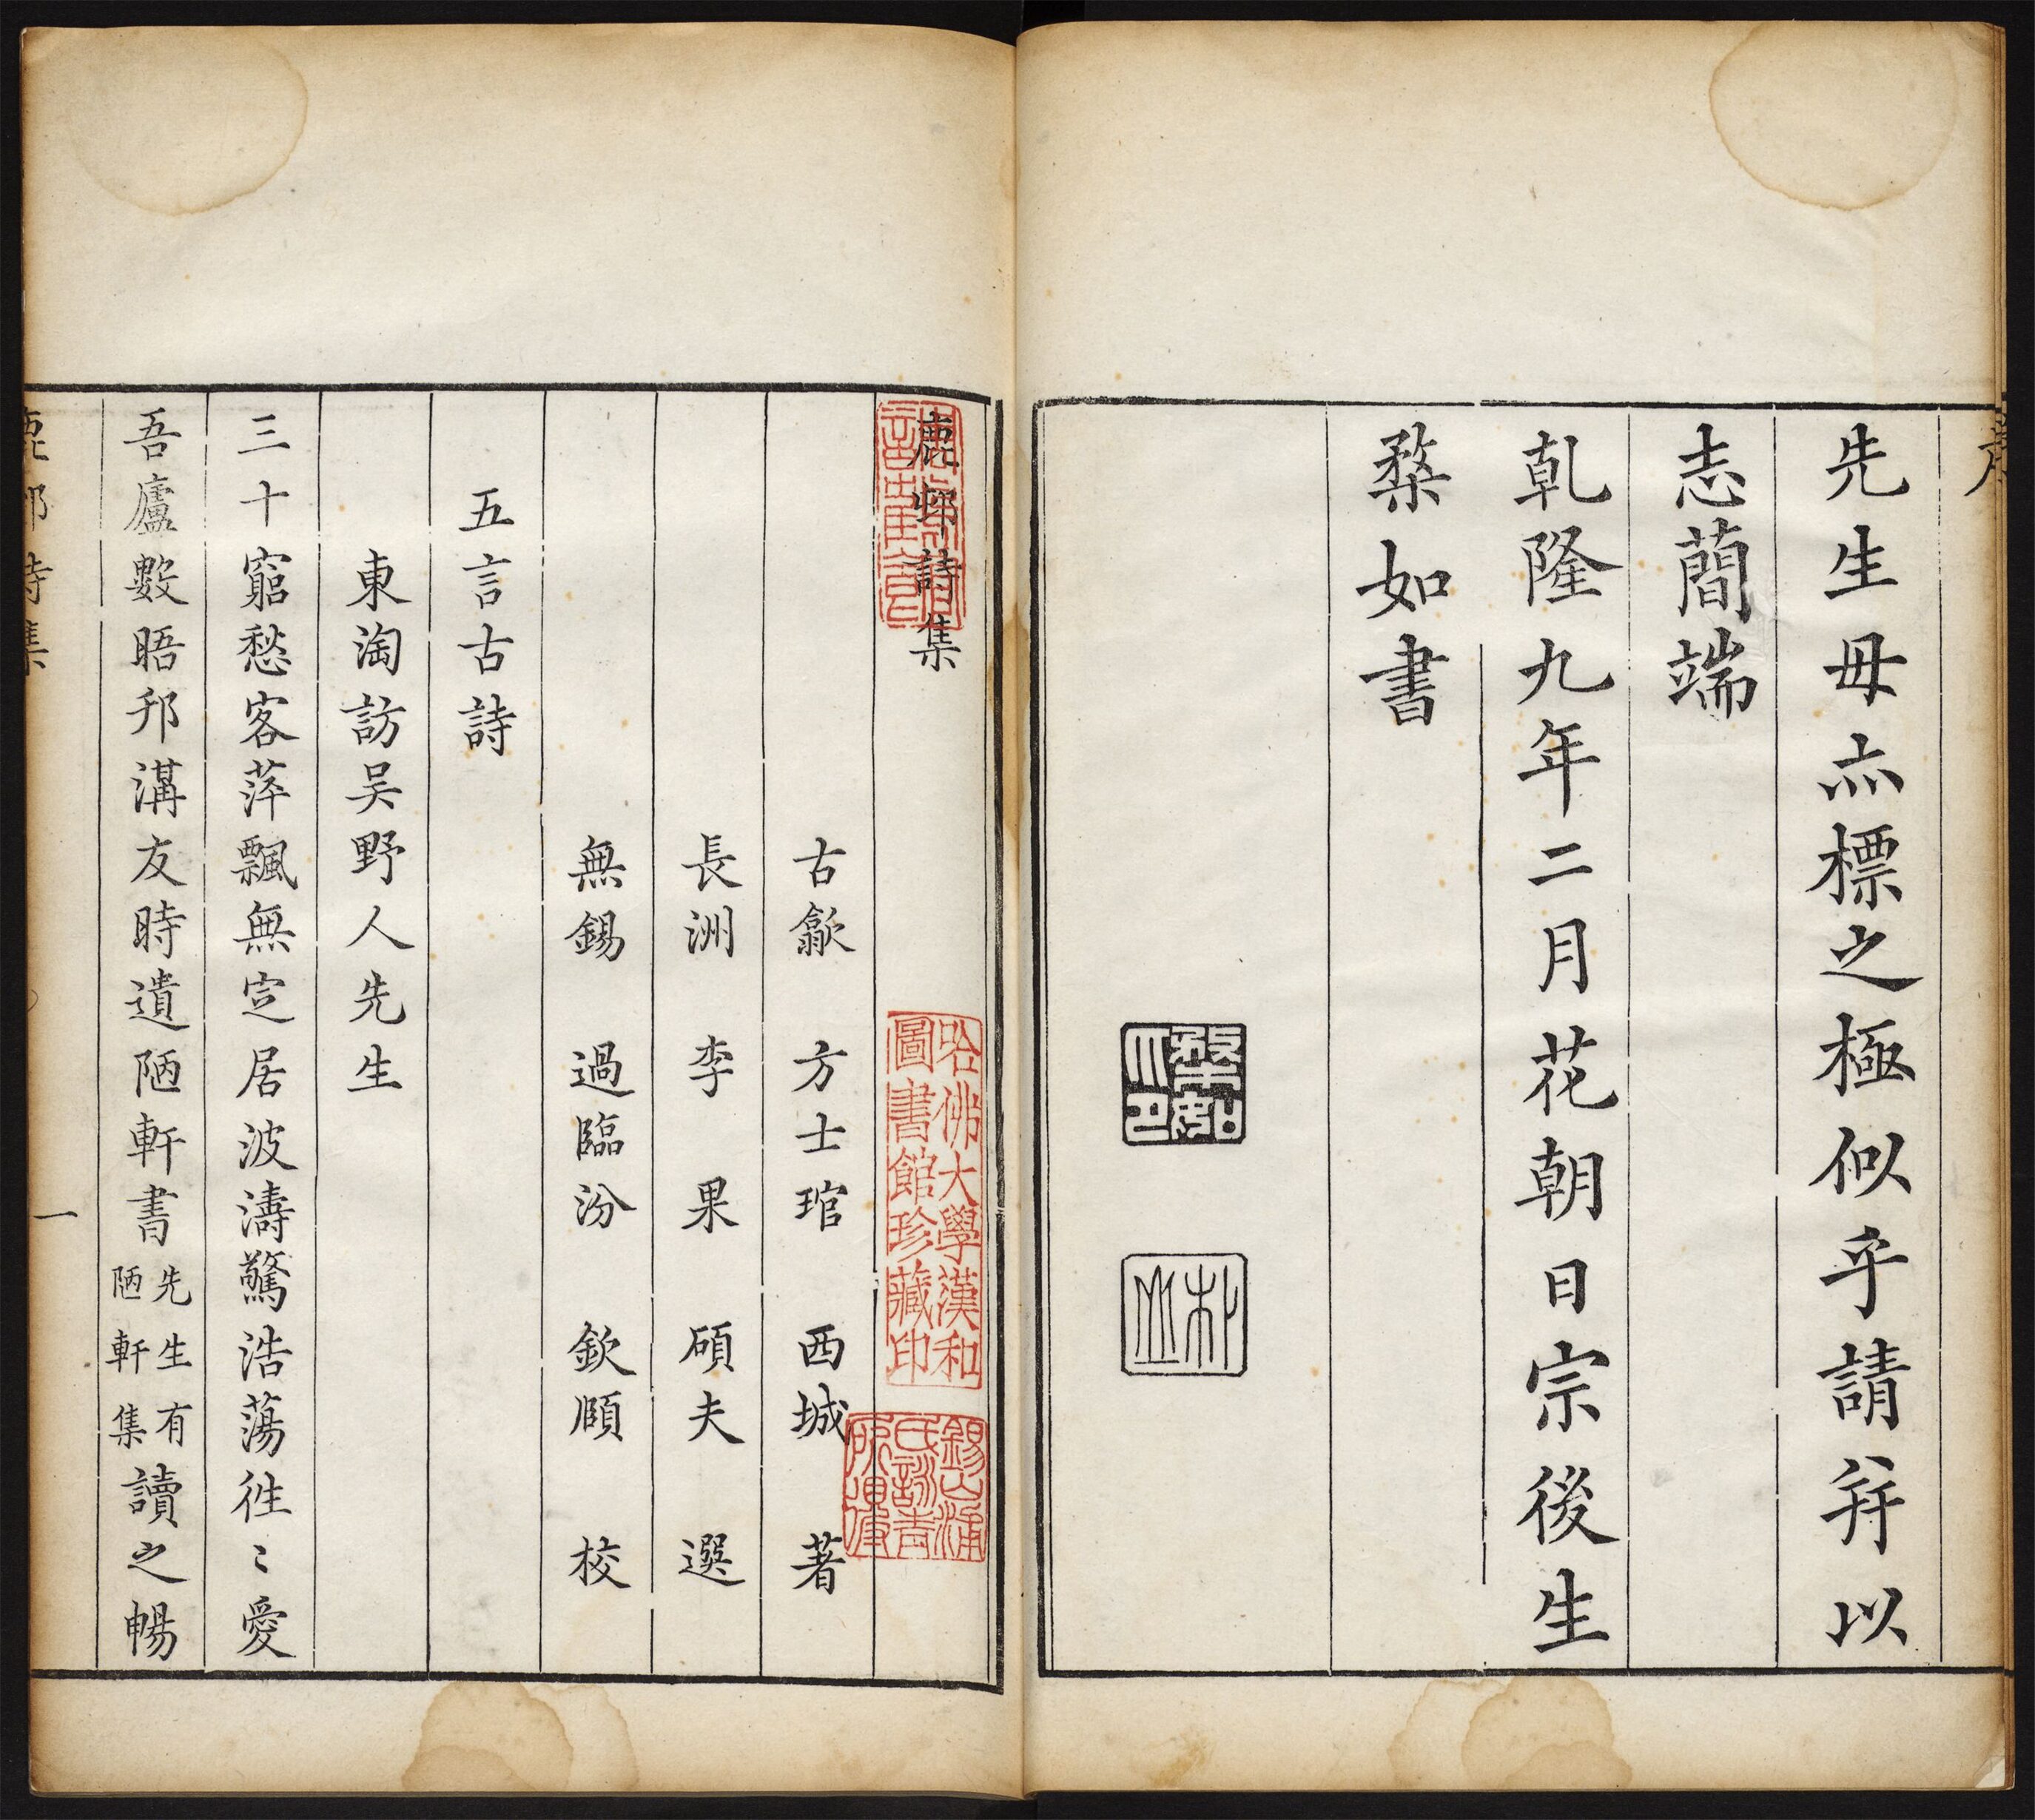 先生毋亦標之極似乎請并以
志簡端
乾隆九年二月花朝日宗後生
棨如書
朴山
鹿邨詩集
哈佛大學漢和
圖書館珍藏印
古歙 方士琯 西城 著
長洲 李果 碩夫 選
無錫 過臨汾 欽頤 校
五言古詩
東淘訪吴野人先生
三十窮愁客萍飄無定居波濤驚浩蕩徃〻愛
吾廬數晤邗溝友時遺陋軒書先生有陋軒集讀之暢
鹿邨詩集
一